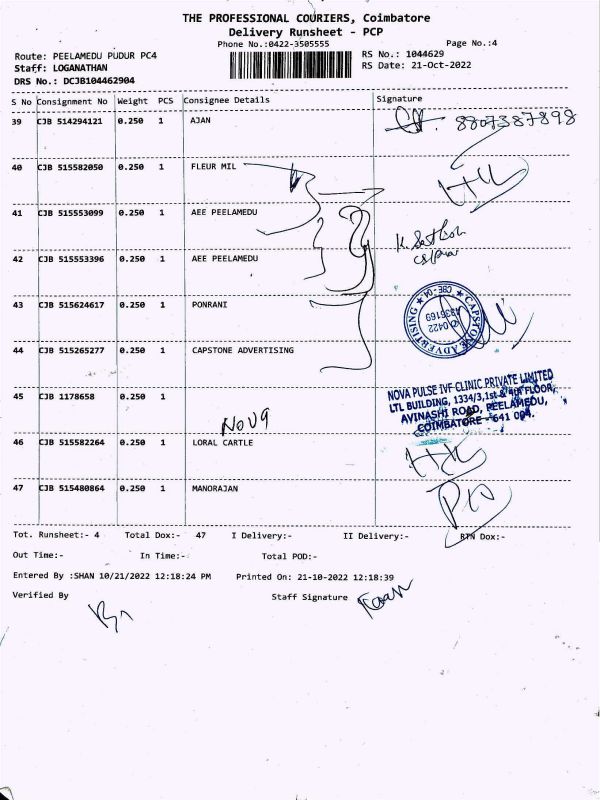 THE PROFESSIONAL COURIERS, Coimbatore
Delivery Runsheet - PCP
Phone No.:0422-3505555
Page No.:4
Route: PEELAMEDU PUDUR PC4
RS No.: 1044629
Staff: LOGANATHAN
RS Date: 21-Oct-2022
DRS No.: DCJB104462904
S No Consignment No Weight PCS Consignee Details Signature
39 CJB 514294121 0.250 1 AJAN 8807387898
40 CJB 515582050 0.250 1 FLEUR MIL
41 CJB 515553099 0.250 1 AEE PEELAMEDU
42 CJB 515553396 0.250 1 AEE PEELAMEDU
43 CJB 515624617 0.250 1 PONRANI
CAPSTONE ADVERTISING ★ CBE-04 ★
0422
4236169
44 CJB 515265277 0.250 1 CAPSTONE ADVERTISING
45 CJB 1178658 0.250 1
NOVA PULSE IVF CLINIC PRIVATE LIMITED
LTL BUILDING, 1334/3,1st & 4th FLOOR,
AVINASHI ROAD, PEELAMEDU,
COIMBATORE - 641 004.
46 CJB 515582264 0.250 1 LORAL CARTLE
47 CJB 515480864 0.250 1 MANORAJAN
Tot. Runsheet:- 4 Total Dox:- 47 I Delivery:- II Delivery:- RTN Dox:-
Out Time:- In Time:- Total POD:-
Entered By :SHAN 10/21/2022 12:18:24 PM Printed On: 21-10-2022 12:18:39
Verified By Staff Signature